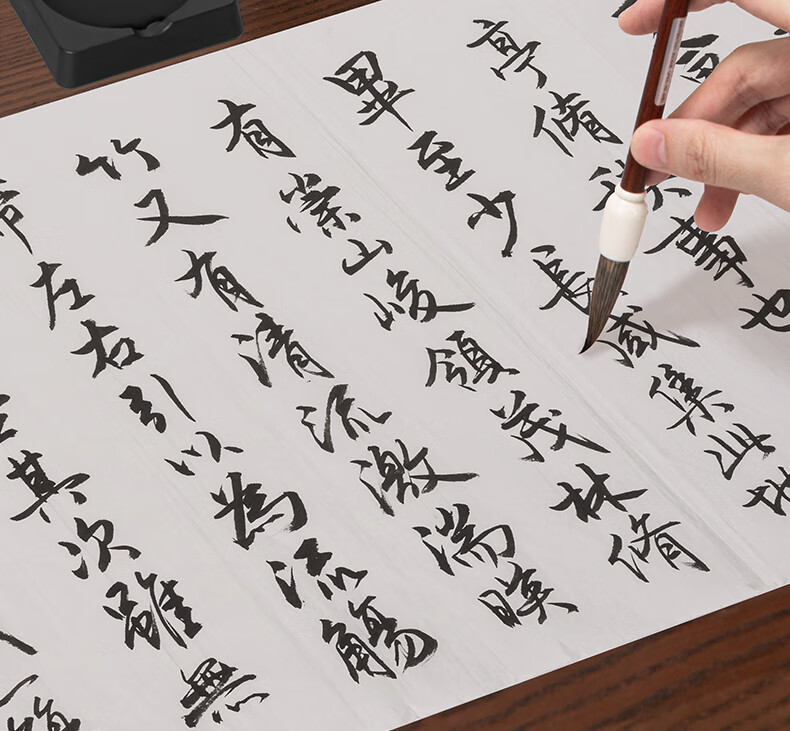 亭脩禊事也
畢至少長咸集此地
有崇山峻領茂林脩
竹又有清流激湍映
左右引以為流觴
其次雖無